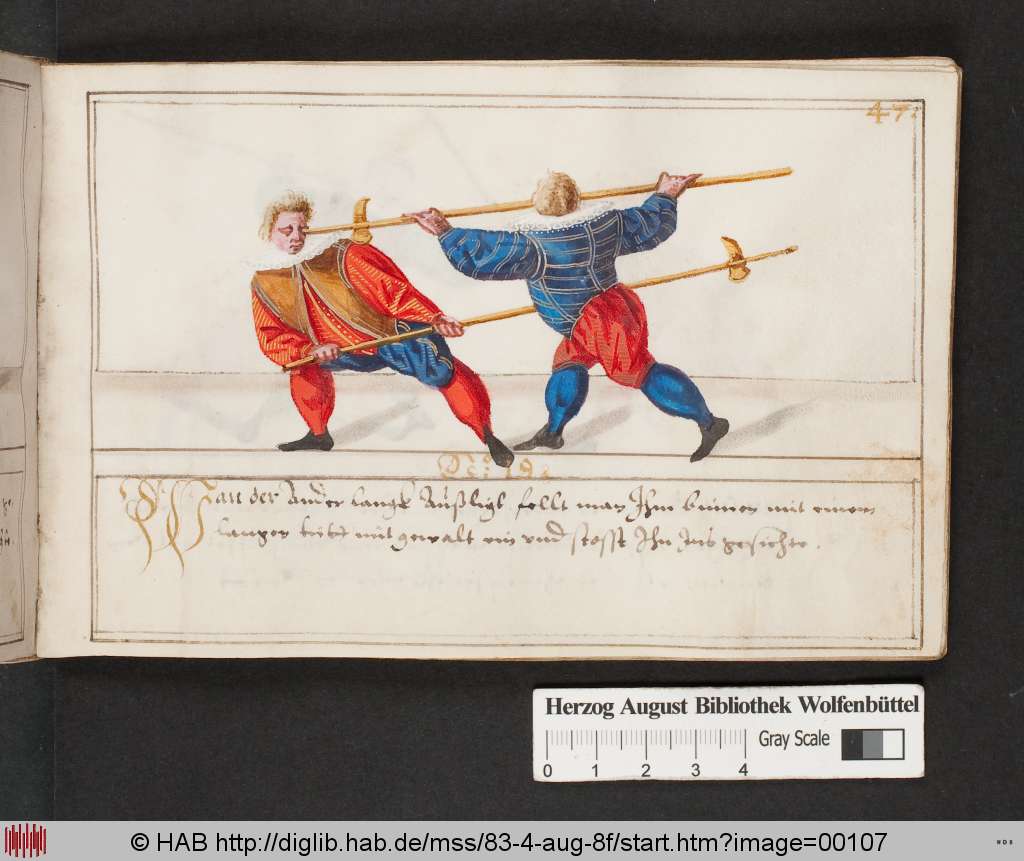 47:
N°: 19:
Wan der Ander langk Außligt fellt man Ihm binnen mit einem
langen tritt mit gewalt ein und stosst Ihn Ins gesichte.
Herzog August Bibliothek Wolfenbüttel
Gray Scale
0 1 2 3 4
© HAB http://diglib.hab.de/mss/83-4-aug-8f/start.htm?image=00107